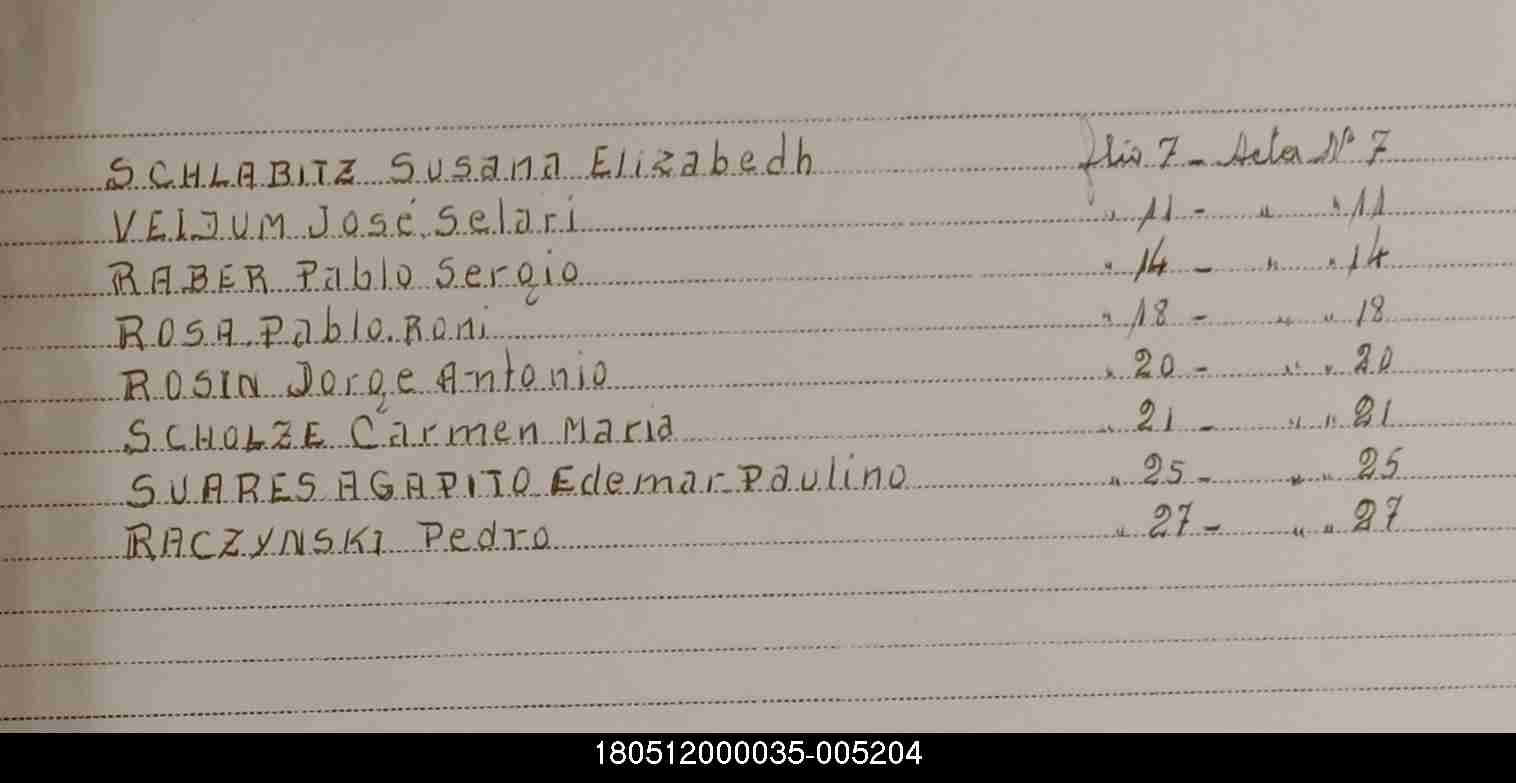 SCHLABITZ Susana Elizabedh flio 7 - Acta Nº 7
VEIJUM José Selari " 11 - " " 11
RABER Pablo Sergio " 14 - " " 14
ROSA Pablo Roni " 18 - " " 18
ROSIN Jorge Antonio " 20 - " " 20
SCHOLZE Carmen Maria " 21 - " " 21
SUARES AGAPITO Edemar Paulino " 25 - " " 25
RACZYNSKI Pedro " 27 - " " 27
180512000035-005204